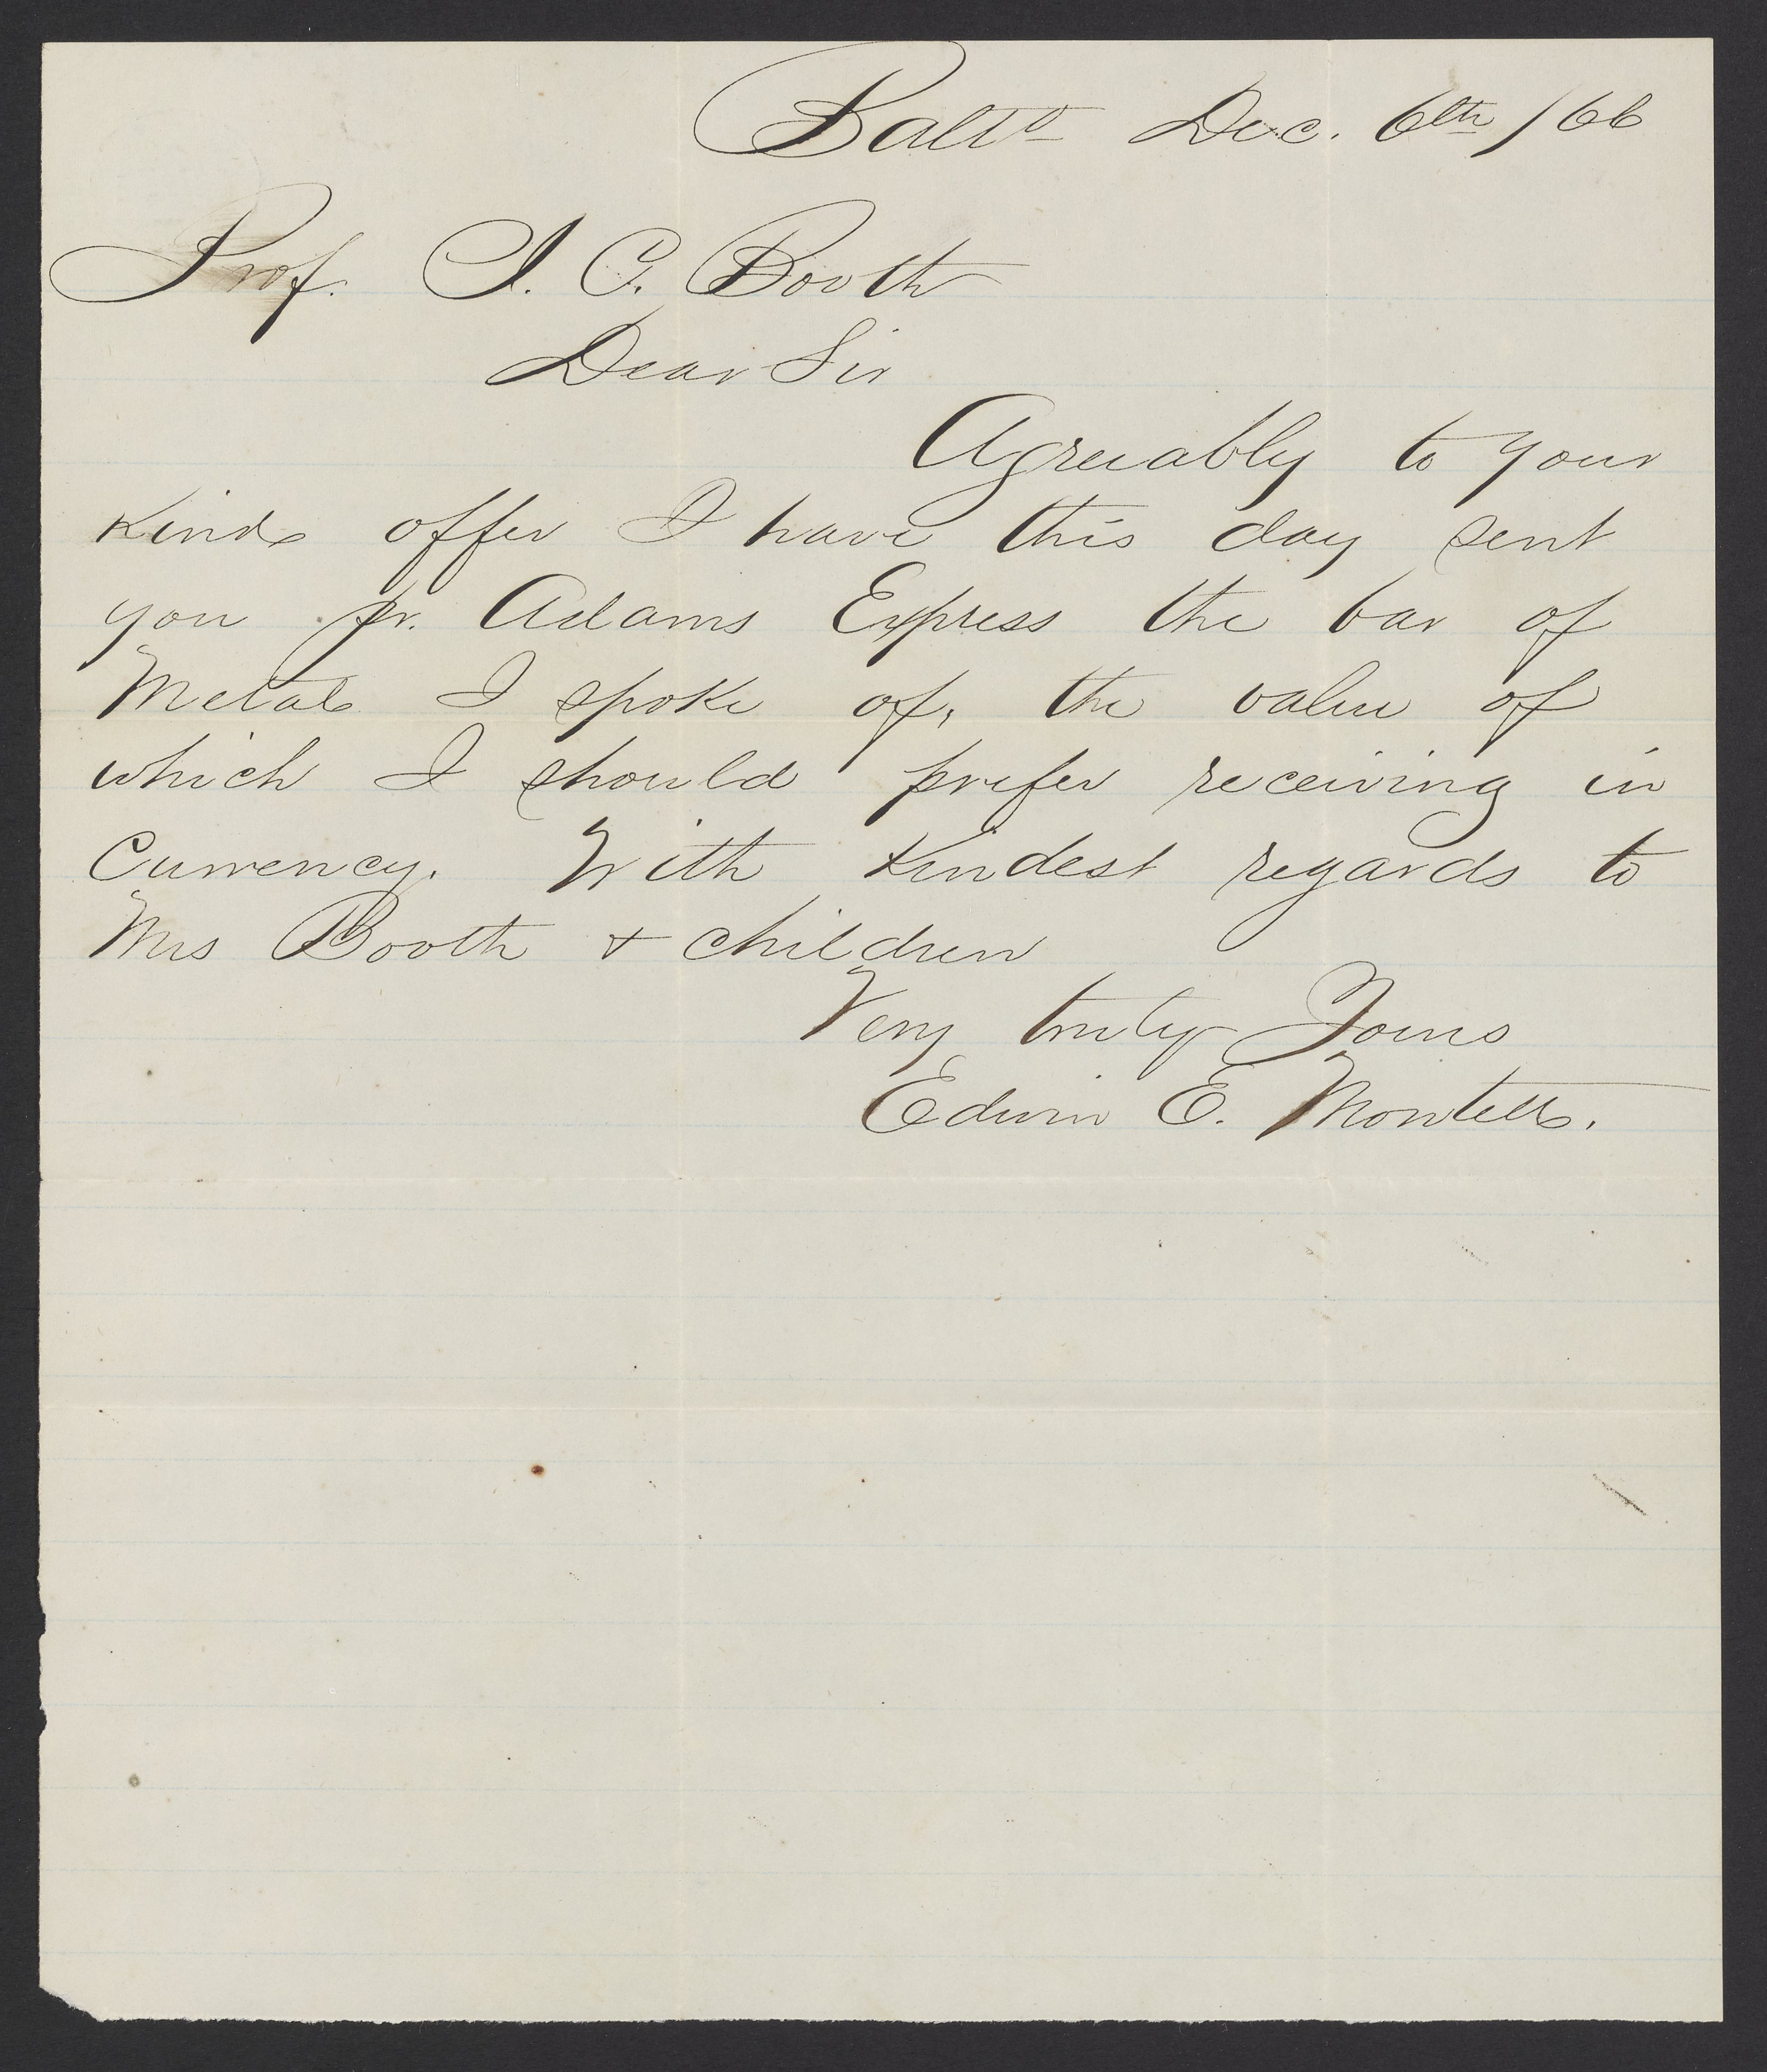 Balto Dec. 6th /66
Prof. J. C. Booth
Dear Sir
Agreeably to your
kind offer I have this day sent
you pr. Adams Express the bar of
Metal I spoke of, the value of
which I should prefer receiving in
Currency. With kindest regards to
Mrs Booth & children
Very truly Yours
Edwin E. Montell.